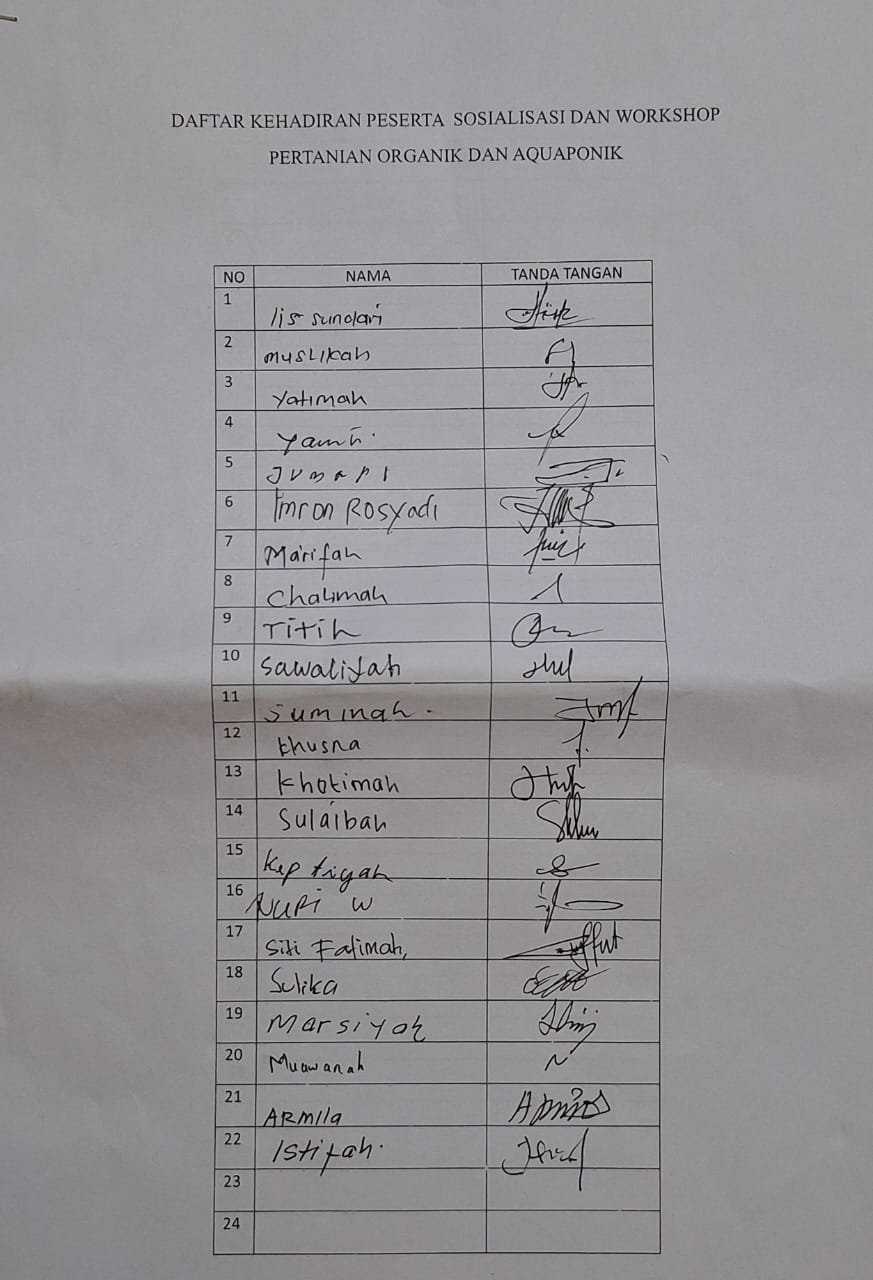 DAFTAR KEHADIRAN PESERTA SOSIALISASI DAN WORKSHOP
PERTANIAN ORGANIK DAN AQUAPONIK
NO NAMA TANDA TANGAN
1 Iis sundari
2 muslikah
3 Yatimah
4 Yamti.
5 Junapi
6 Imron Rosyadi
7 Ma'rifah
8 Chalimah
9 Titik
10 Sawaliyah
11 Suminah.
12 khusna
13 Khotimah
14 Sulaibah
15 Keptiyah
16 NURI W
17 Siti Fatimah,
18 Sulika
19 Marsiyah
20 Muawanah
21 ARMila
22 Istifah.
23
24